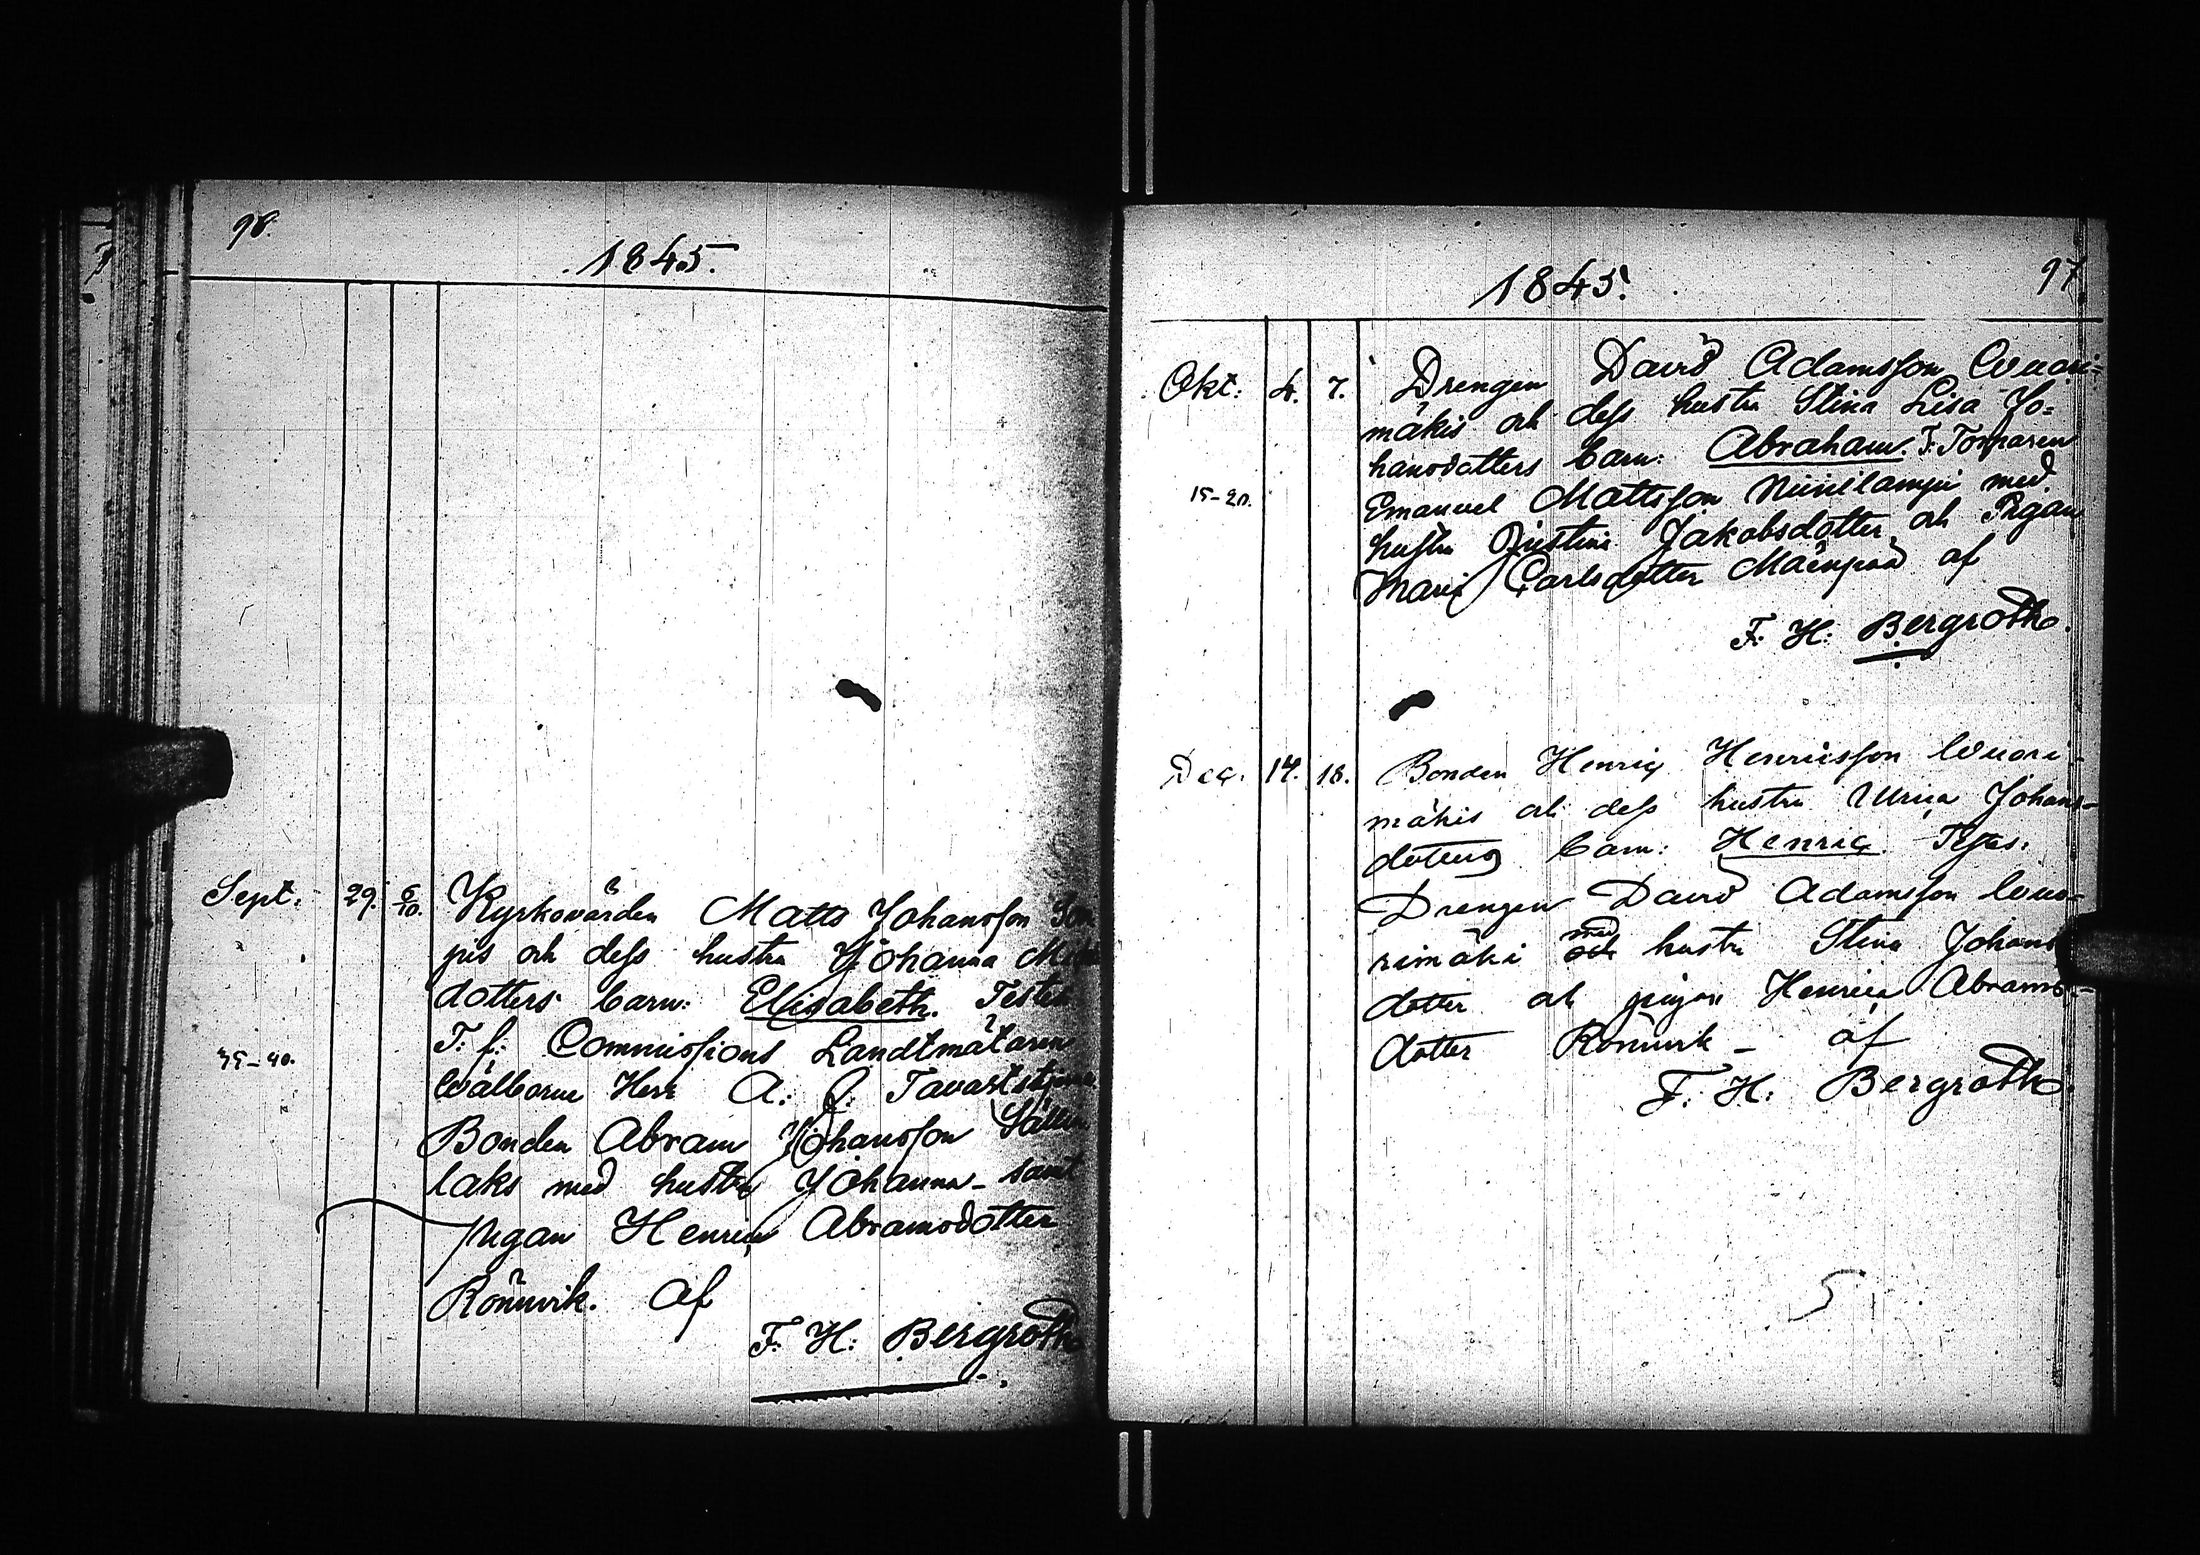 98.
1845.
Sept. 29. 6/10. Kyrkovärden Matts Johansson
pis och dess hustru Johanna
dotters barn: Elisabeth.
T. f. Commissions Landtmätaren
Wälborne Herr A. J. Tavaststjerna
Bonden Abram Johansson
35-40.
laks med hustru Johanna - samt
pigan Henrica Abramsdotter
Rönnvik. af
F. H. Bergroth
1845.
97
Okt. 4. 7. Drengen David Adamsson Wuori=
mäkis och dess hustru Stina Lisa Jo=
hansdotters barn: Abraham. F. Torparen
15-20.
Emanuel Mattsson med
hustru Justina Jakobsdotter och Pigan
Maria Carlsdotter Mäenpää af
F. H. Bergroth.
Dec. 14. 18. Bonden Henric Henricsson Wuori-
mäkis och dess hustru Ulrica Johans-
dotters barn: Henric. Test.
Drengen David Adamsson Wuo-
rimäki och med hustru Stina Johans
dotter och pigan Henrica Abrams-
dotter Rönnvik - af
F. H. Bergroth.
5